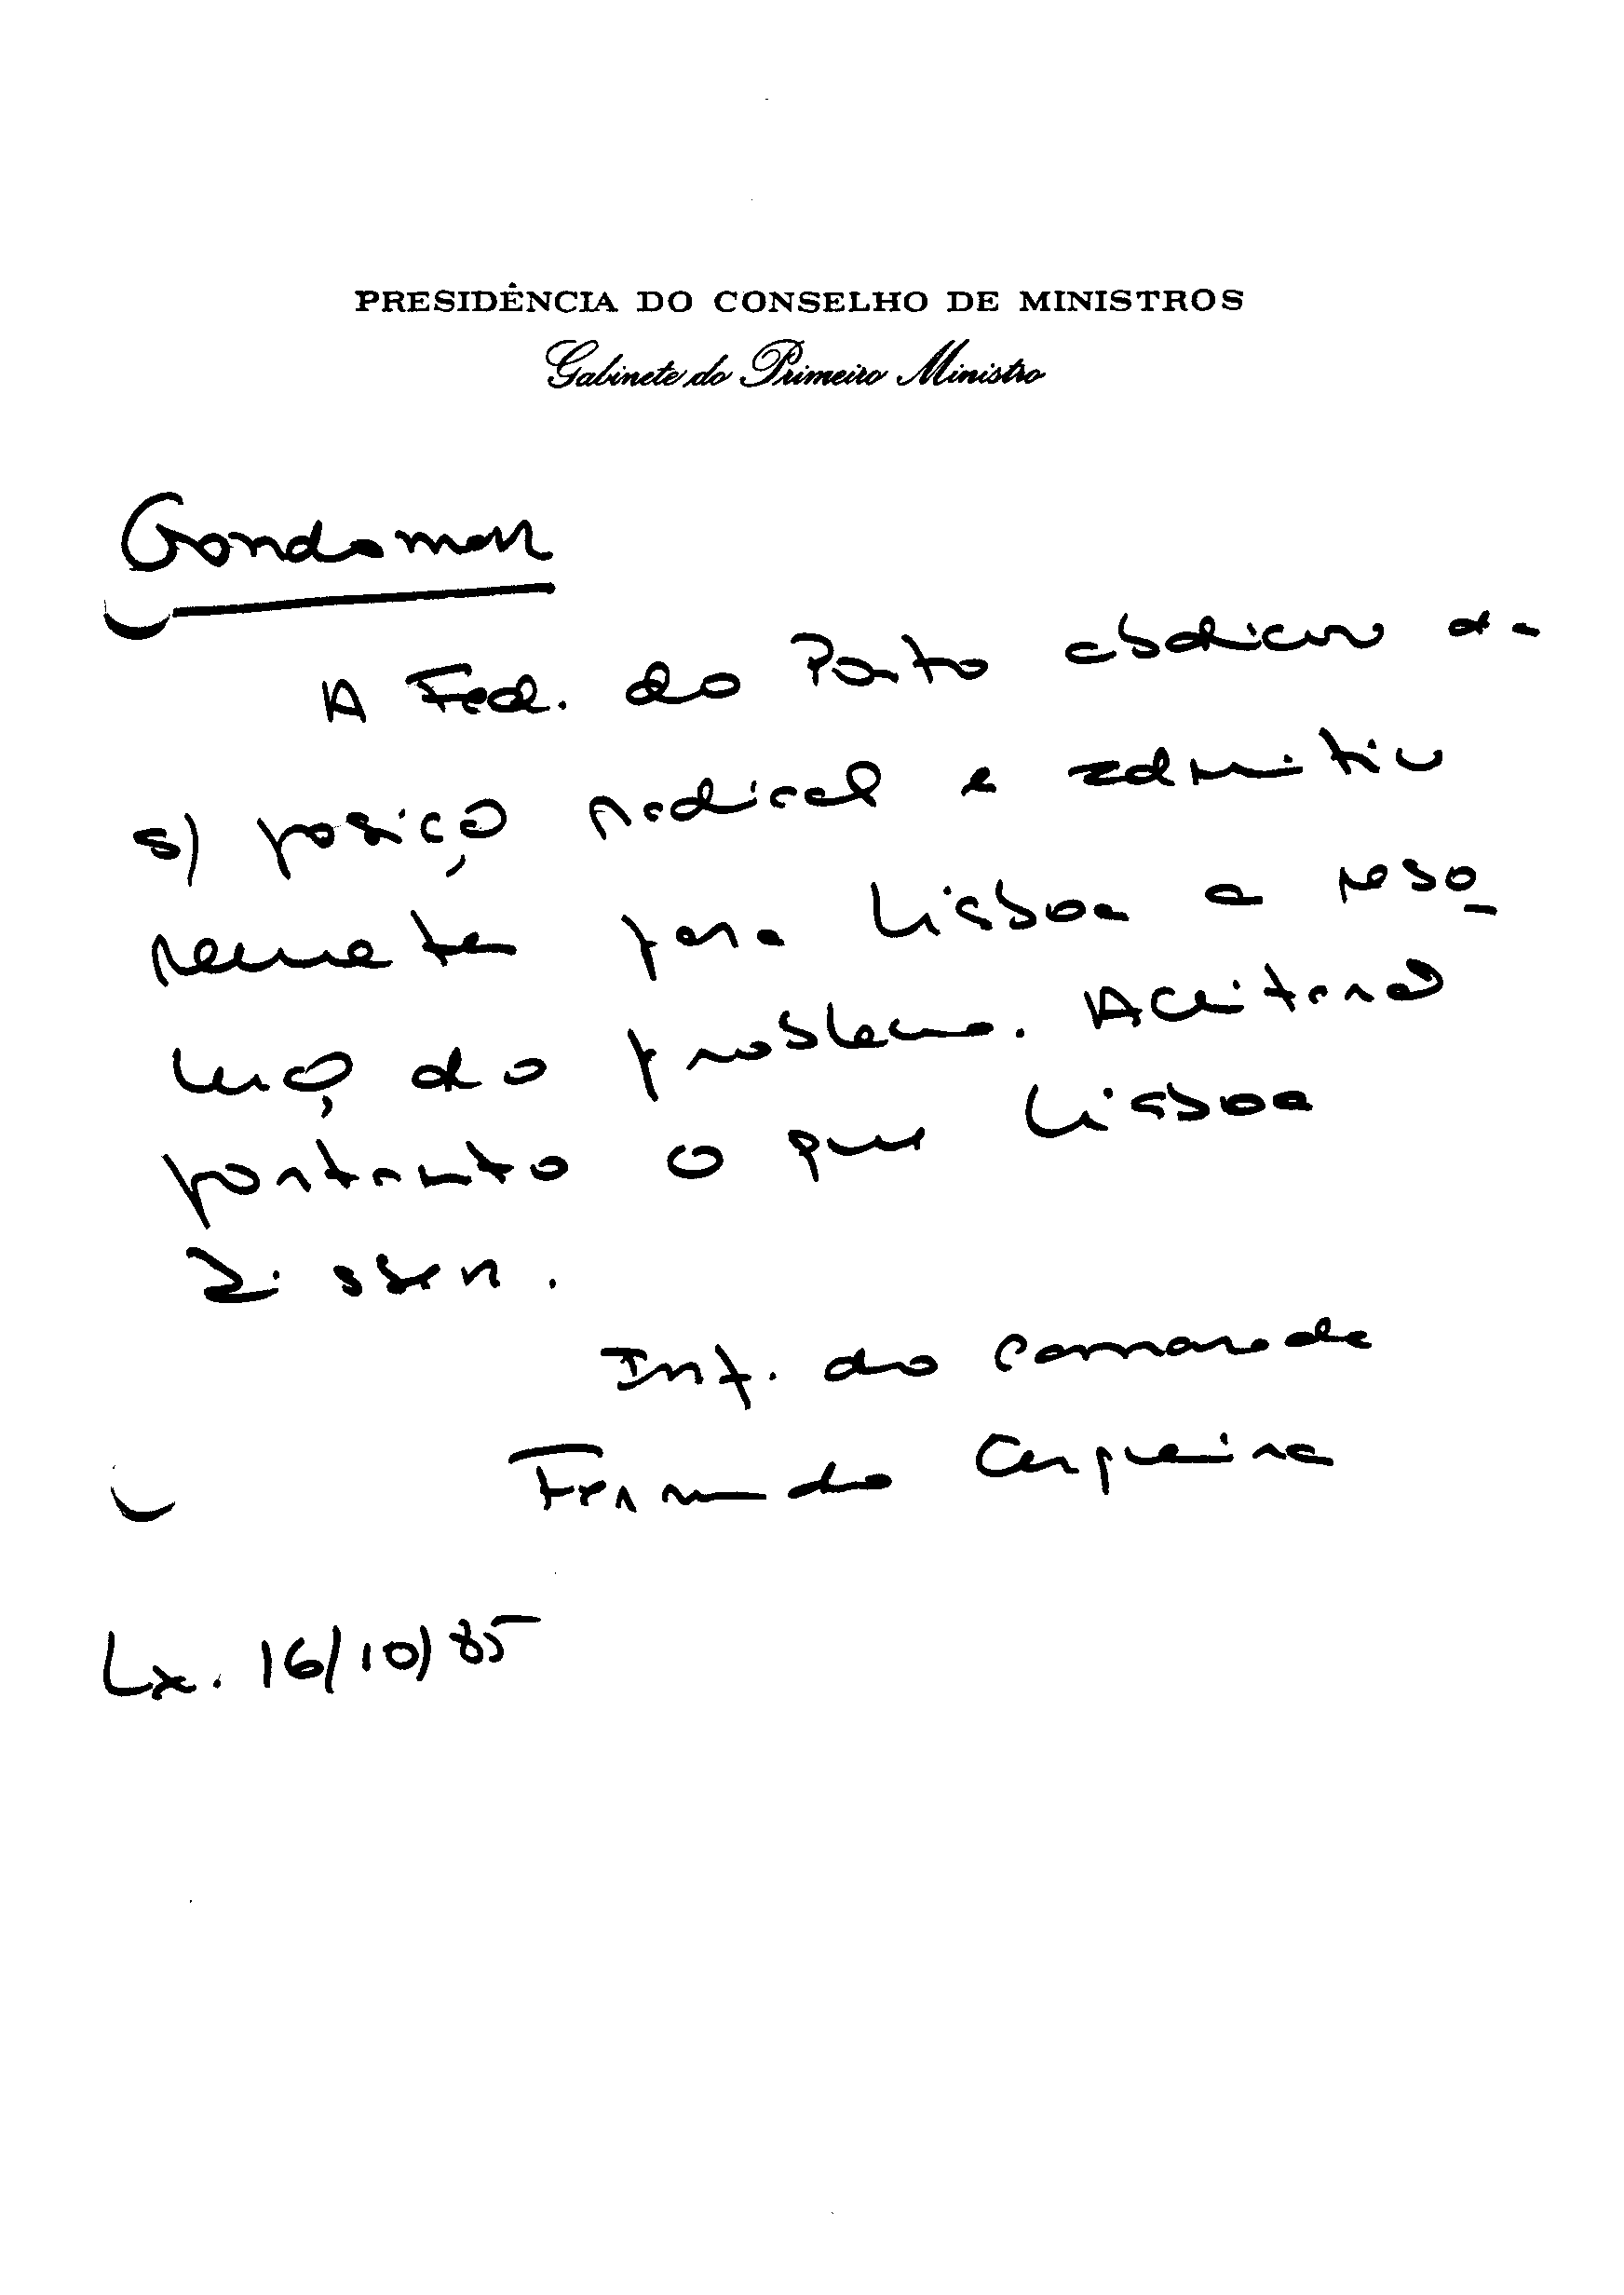 PRESIDÊNCIA DO CONSELHO DE MINISTROS
Gabinete do Primeiro Ministro
Gondomar
A Fed. do Porto abdicou da
s/ posiçº radical e admitiu
remeter para Lisboa a reso-
luçº do problema. Aceitará
portanto o que Lisboa
disser.
Inf. do camarada
Fernando Cerqueira
Lx. 16/10/85